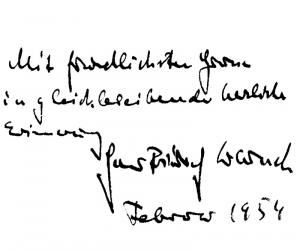 Mit freundlichsten Grüssen
in gleichbleibender herzlicher
Erinnerung
Februar 1954